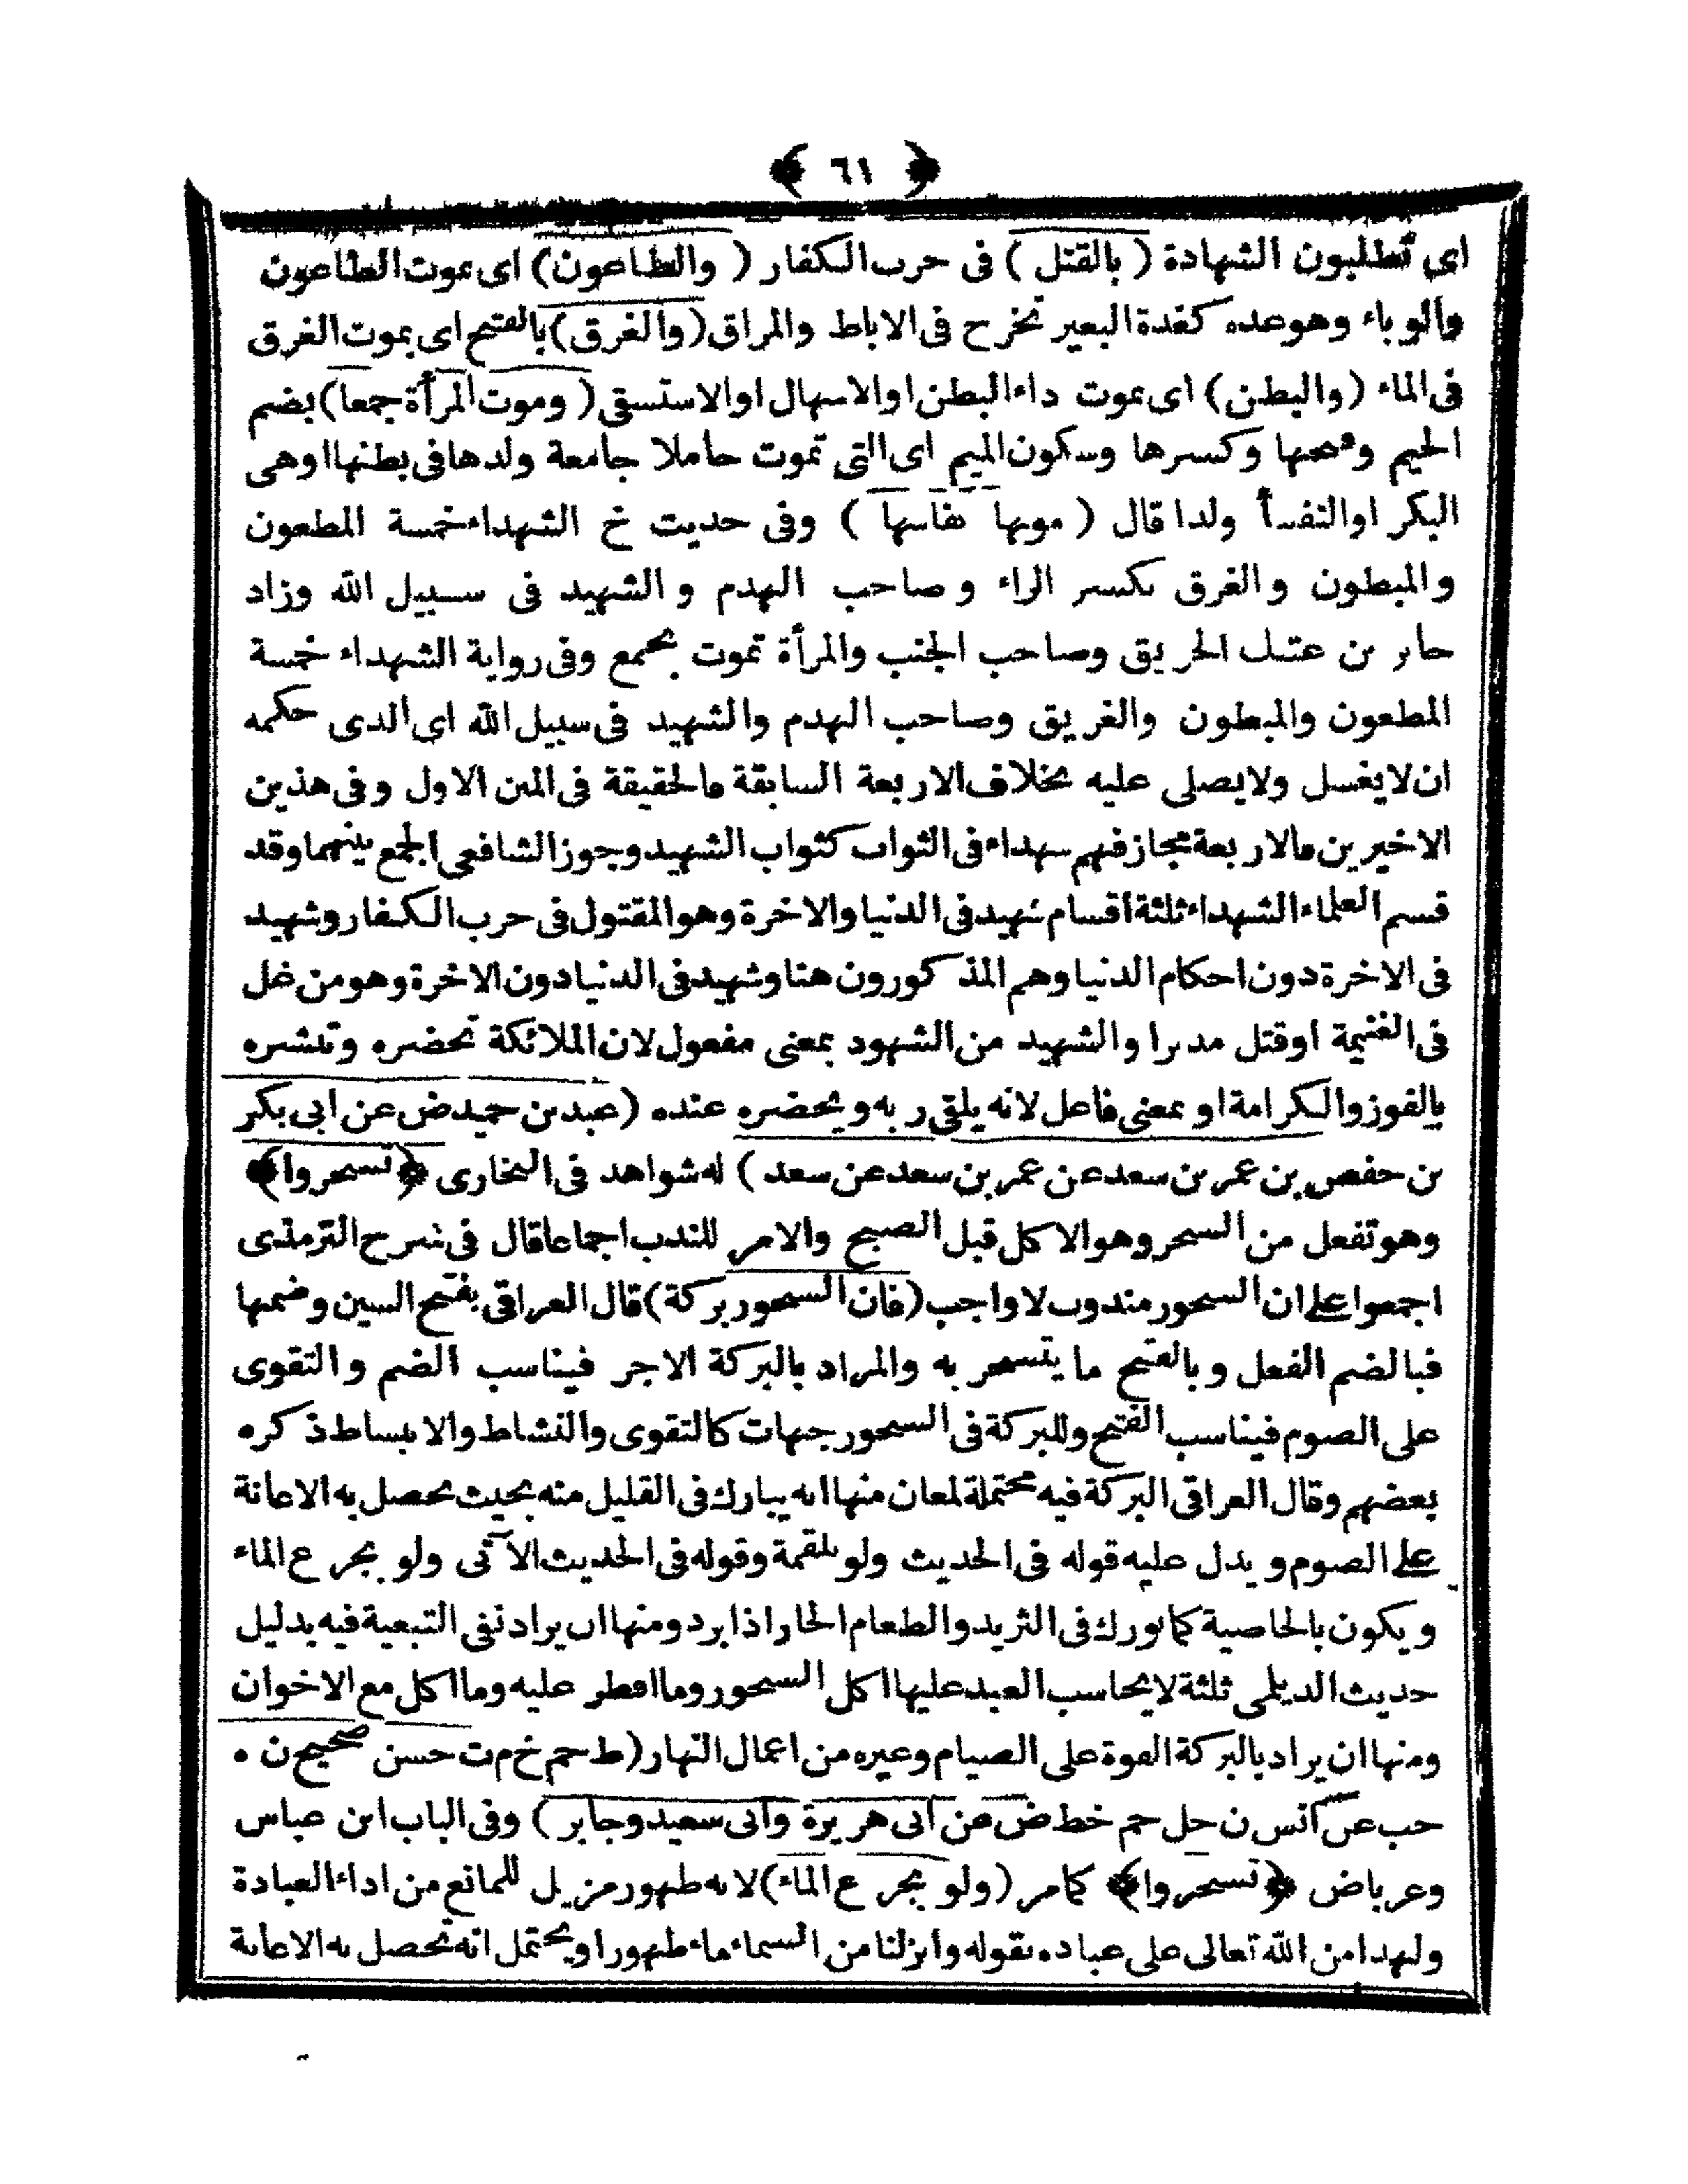 ﴿ ٦١ ﴾
اى تطلبون الشهادة ( بالقتل ) فى حرب الكفار ( والطاعون ) اى بموت الطاعون
والوباء وهو غده كغدة البعير تخرج فى الاباط والمراق (والغرق) بالفتح اى بموت الغرق
فى الماء (والبطن) اى بموت داء البطن او الاسهال او الاستسقى (وموت المرأة جمعا) بضم
الجيم وفتحها وكسرها وسكون الميم اى التى تموت حاملا جامعة ولدها فى بطنها او هى
البكر او النفسأ ولذا قال ( موتها نفاسها ) وفى حديث خ الشهداء خمسة المطعون
والمبطون والغرق بكسر الراء وصاحب الهدم والشهيد فى سبيل الله وزاد
جابر بن عتيك الحريق وصاحب الجنب والمرأة تموت بجمع وفى رواية الشهداء خمسة
المطعون والمبطون والغريق وصاحب الهدم والشهيد فى سبيل الله اى الذى حكمه
ان لايغسل ولايصلى عليه بخلاف الاربعة السابقة فالحقيقة فى المتن الاول وفى هذين
الاخيرين فالاربعة مجاز فهم شهداء فى الثواب كثواب الشهيد وجوز الشافعى الجمع بينهما وقد
قسم العلماء الشهداء ثلثة اقسام شهيد فى الدنيا والاخرة وهو المقتول فى حرب الكفار وشهيد
فى الاخرة دون احكام الدنيا وهم المذكورون هنا وشهيد فى الدنيا دون الاخرة وهو من غل
فى الغنيمة او قتل مدبرا والشهيد من الشهود بمعنى مفعول لان الملائكة تحضره وتبشره
بالفوز والكرامة او بمعنى فاعل لانه يلقى ربه ويحضره عنده (عبد بن حميد ض عن ابى بكر
بن حفص بن عمر بن سعد عن عمر بن سعد عن سعد ) له شواهد فى البخارى ﴿تسحروا﴾
وهو تفعل من السحر وهو الاكل قبل الصبح والامر للندب اجماعا قال فى شرح الترمذى
اجمعوا على ان السحور مندوب لا واجب (فان السحور بركة) قال العراقى بفتح السين وضمها
فبالضم الفعل وبالفتح ما يتسحر به والمراد بالبركة الاجر فيناسب الضم والتقوى
على الصوم فيناسب الفتح وللبركة فى السحور جهات كالتقوى والنشاط والابساط ذكره
بعضهم وقال العراقى البركة فيه محتملة لمعان منها انه يبارك فى القليل منه بحيث يحصل به الاعانة
على الصوم ويدل عليه قوله فى الحديث ولو بلقمة وقوله فى الحديث الآتى ولو بجرع الماء
ويكون بالخاصية كما بورك فى الثريد والطعام الحار اذا برد ومنها ان يراد نفى التبعية فيه بدليل
حديث الديلمى ثلثة لايحاسب العبد عليها اكل السحور وما افطر عليه وما اكل مع الاخوان
ومنها ان يراد بالبركة القوة على الصيام وغيره من اعمال النهار (ط حم خ م ت حسن صحيح ن ه
حب عن انس ن حل حم خط ض عن ابى هريرة وابى سعيد وجابر ) وفى الباب ابن عباس
وعرباض ﴿تسحروا﴾ كمامر (ولو بجرع الماء) لانه طهور مزيل للمانع من اداء العبادة
ولهذا من الله تعالى على عباده بقوله وانزلنا من السماء ماء طهورا ويحتمل انه تحصل به الاعانة